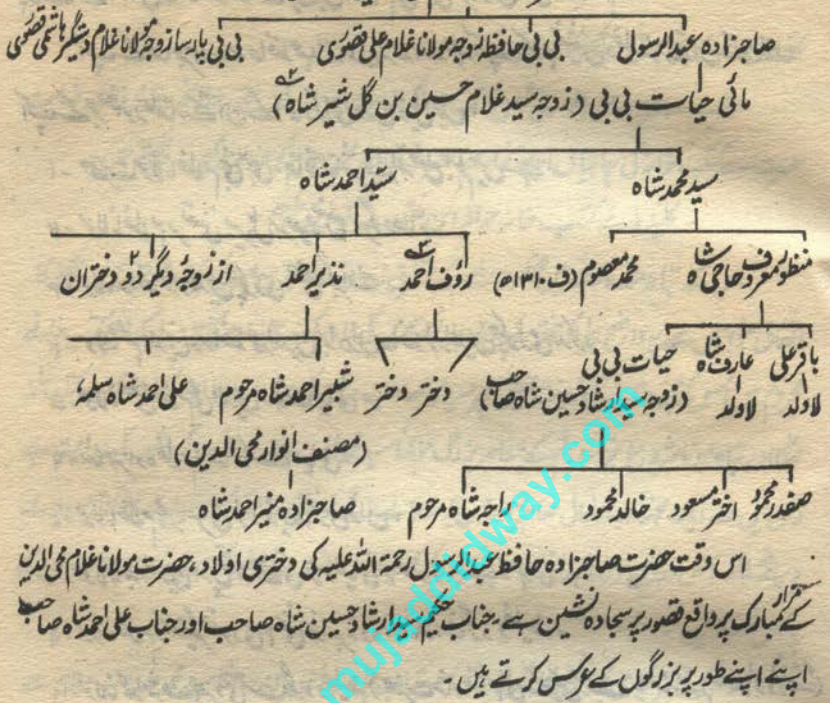 صاجزادہ عبدالرسول بی بی حافظہ زوجہ مولانا غلام علی قصوری بی بی پارسا زوجہ مولانا غلام دستگیر ہاشمی قصوری
مائی حیات بی بی (زوجہ سید غلام حسین بن گل شیر شاہ ۲؎)
سید محمد شاہ سید احمد شاہ
منظور معروف حاجی شاہ محمد معصوم (ف ۱۳۱۰ھ) رؤف احمد ۳؎ نذیر احمد از زوجۂ دیگر دو ۲ دختران
باقر علی عارف شاہ حیات بی بی دختر دختر شبیر احمد شاہ مرحوم علی احمد شاہ سلمہٗ
لاولد لاولد (زوجہ سید ارشاد حسین شاہ صاحب)
(مصنف انوار محی الدین)
صفدر محمود اختر مسعود خالد محمود راجہ شاہ مرحوم صاجزادہ منیر احمد شاہ
اس وقت حضرت صاجزادہ حافظ عبدالرسول رحمۃ اللہ علیہ کی دختری اولاد، حضرت مولانا غلام محی الدین
کے مزار مبارک پر واقع قصور پر سجادہ نشین ہے۔ جناب حکیم سید ارشاد حسین شاہ صاحب اور جناب علی احمد شاہ صاحب
اپنے اپنے طور پر بزرگوں کے عرس کرتے ہیں۔
mujaddidway.com